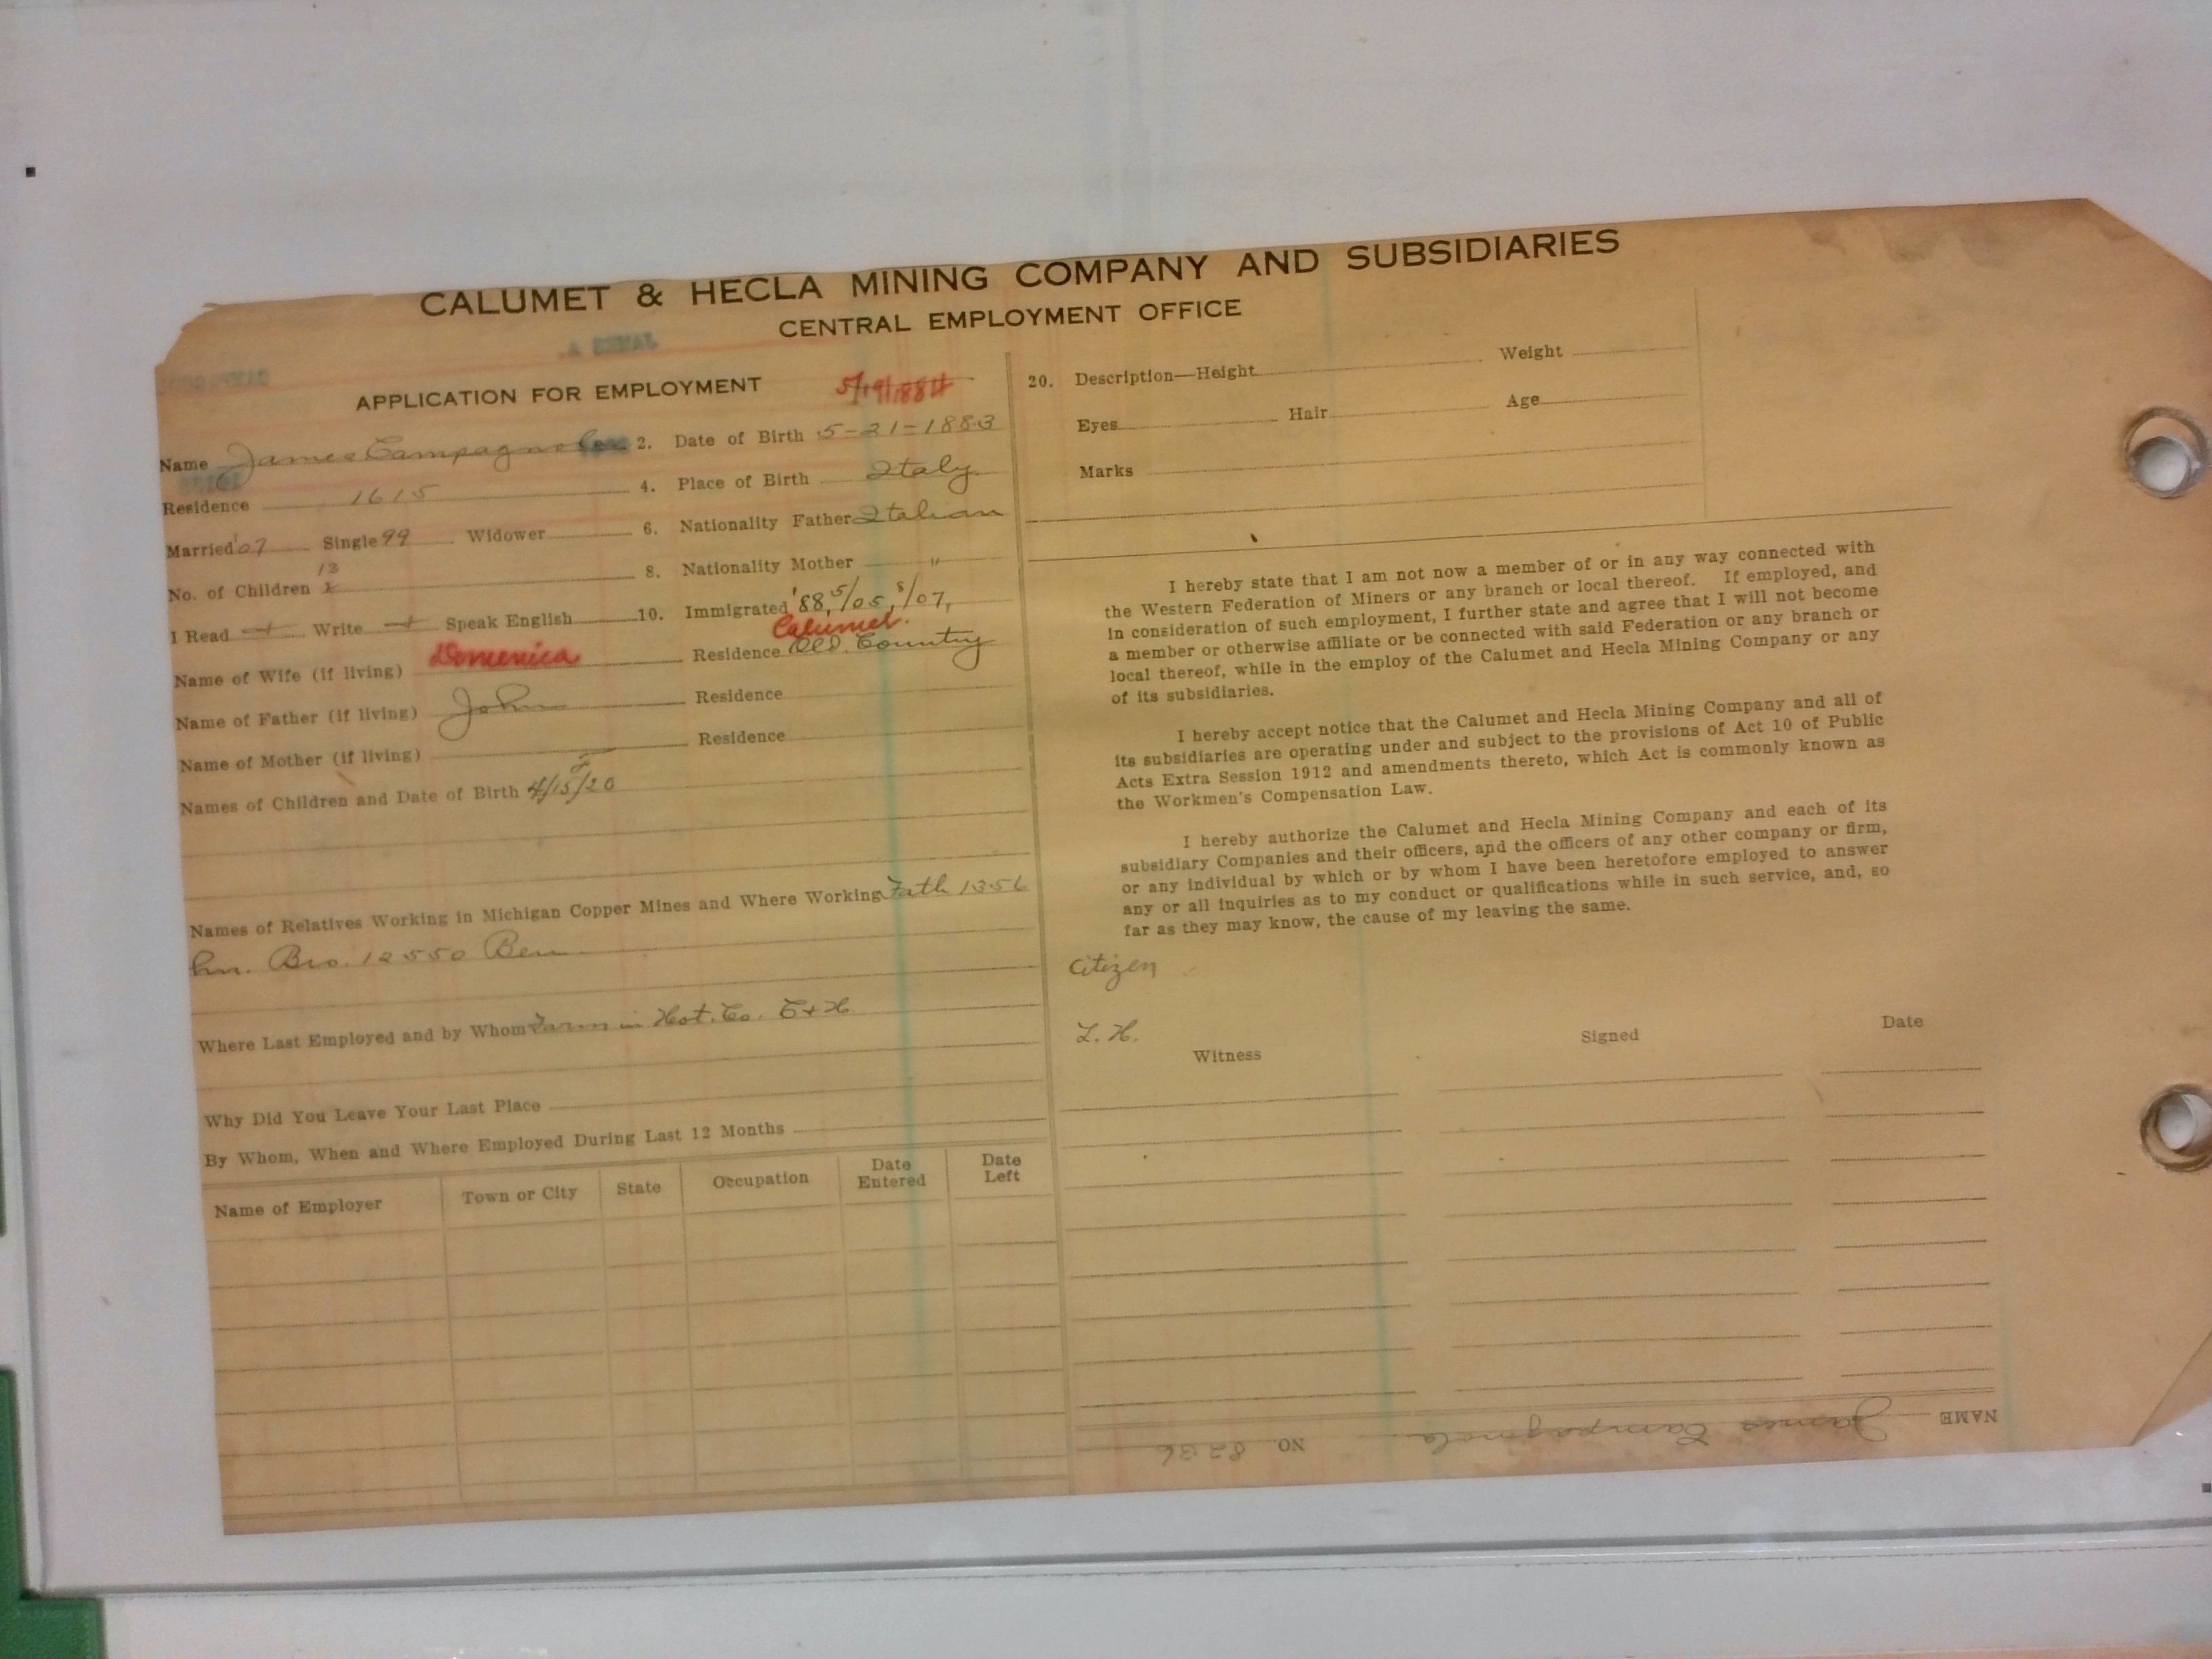 CALUMET & HECLA MINING COMPANY AND SUBSIDIARIES
CENTRAL EMPLOYMENT OFFICE
APPLICATION FOR EMPLOYMENT 5/19/1884
Name James Campagnola 2. Date of Birth 5-21-1883
Residence 1615 4. Place of Birth Italy
Married '07 Single 99 Widower 6. Nationality Father Italian
13
No. of Children 8. Nationality Mother "
I Read + Write + Speak English 10. Immigrated '88, 5/05, 8/07,
Calumet.
Name of Wife (if living) Domenica Residence Old Country
Name of Father (if living) John Residence
Name of Mother (if living) Residence
Names of Children and Date of Birth 4/15/20
Names of Relatives Working in Michigan Copper Mines and Where Working Fath 1356
Bro. 12550 Ben
Where Last Employed and by Whom Farm in Hot. Co. C+H
Why Did You Leave Your Last Place
By Whom, When and Where Employed During Last 12 Months
Name of Employer Town or City State Occupation Date Entered Date Left
20. Description—Height Weight
Eyes Hair Age
Marks
I hereby state that I am not now a member of or in any way connected with
the Western Federation of Miners or any branch or local thereof. If employed, and
in consideration of such employment, I further state and agree that I will not become
a member or otherwise affiliate or be connected with said Federation or any branch or
local thereof, while in the employ of the Calumet and Hecla Mining Company or any
of its subsidiaries.
I hereby accept notice that the Calumet and Hecla Mining Company and all of
its subsidiaries are operating under and subject to the provisions of Act 10 of Public
Acts Extra Session 1912 and amendments thereto, which Act is commonly known as
the Workmen's Compensation Law.
I hereby authorize the Calumet and Hecla Mining Company and each of its
subsidiary Companies and their officers, and the officers of any other company or firm,
or any individual by which or by whom I have been heretofore employed to answer
any or all inquiries as to my conduct or qualifications while in such service, and, so
far as they may know, the cause of my leaving the same.
Citizen
L. H.
Witness Signed Date
NAME James Campagnola NO. 8236